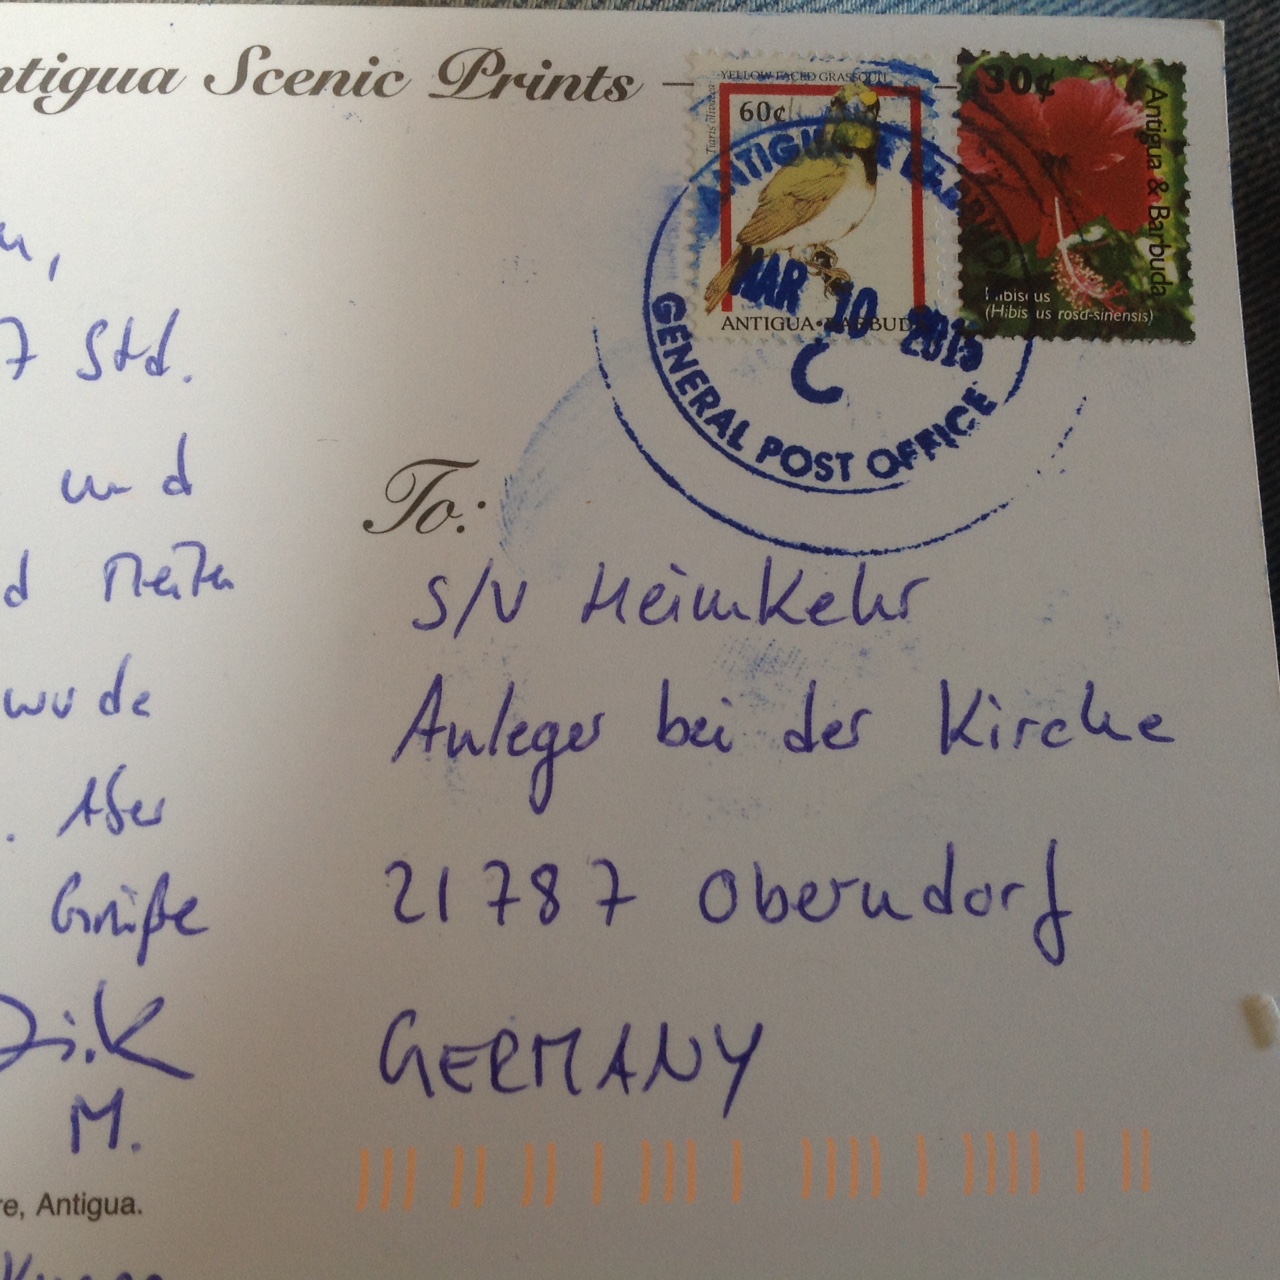 ntigua Scenic Prints
YELLOW-FACED GRASSQUIT
Tiaris olivacea
60¢
ANTIGUA • BARBUDA
30¢
Antigua & Barbuda
Hibiscus
(Hibiscus rosa-sinensis)
ANTIGUA & BARBUDA
MAR 10 2015
C
GENERAL POST OFFICE
7 Std.
und
d Meilen
wude
. Aber
Grüße
Dirk
M.
re, Antigua.
To:
S/V Heimkehr
Anleger bei der Kirche
21787 Oberndorf
GERMANY